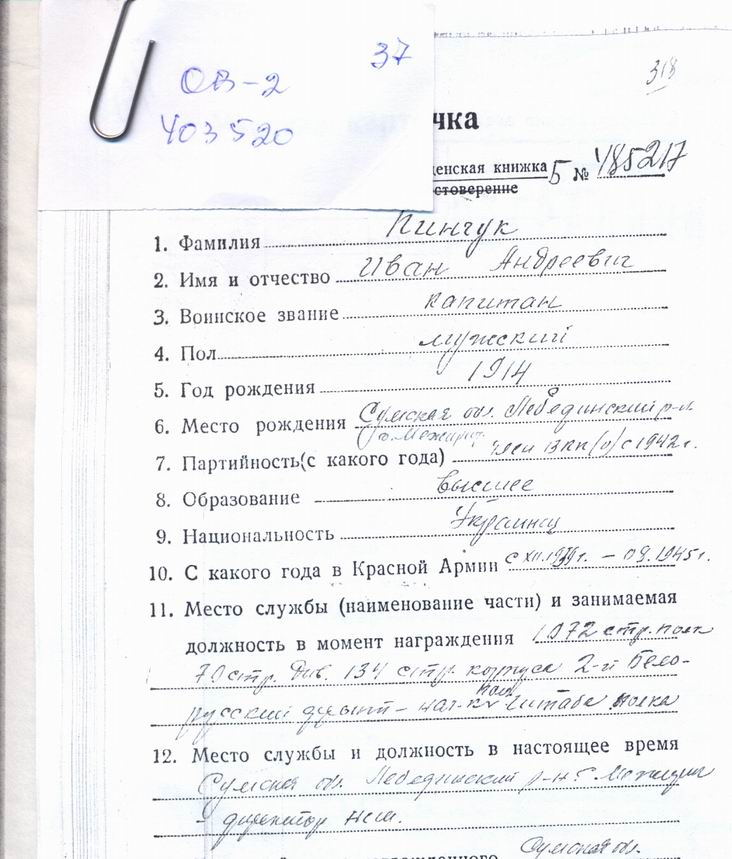 37
ОВ-2
403520
318
чка
денская книжка Б № 485217
стоверение
1. Фамилия Пинчук
2. Имя и отчество Иван Андреевич
3. Воинское звание капитан
4. Пол мужский
5. Год рождения 1914
6. Место рождения Сумская обл. Лебединский р-н.
7. Партийность(с какого года) член ВКП(б) с 1942г.
8. Образование высшее
9. Национальность Украинец
10. С какого года в Красной Армии с XII.1939г. – 09.1945г.
11. Место службы (наименование части) и занимаемая
должность в момент награждения 1072 стр. полк
70 стр. див. 134 стр. корпуса 2-й Бело-
русский фронт – нач-к штаба полка
12. Место службы и должность в настоящее время
Сумская обл. Лебединский р-н с Межирич
– директор
Сумская обл.